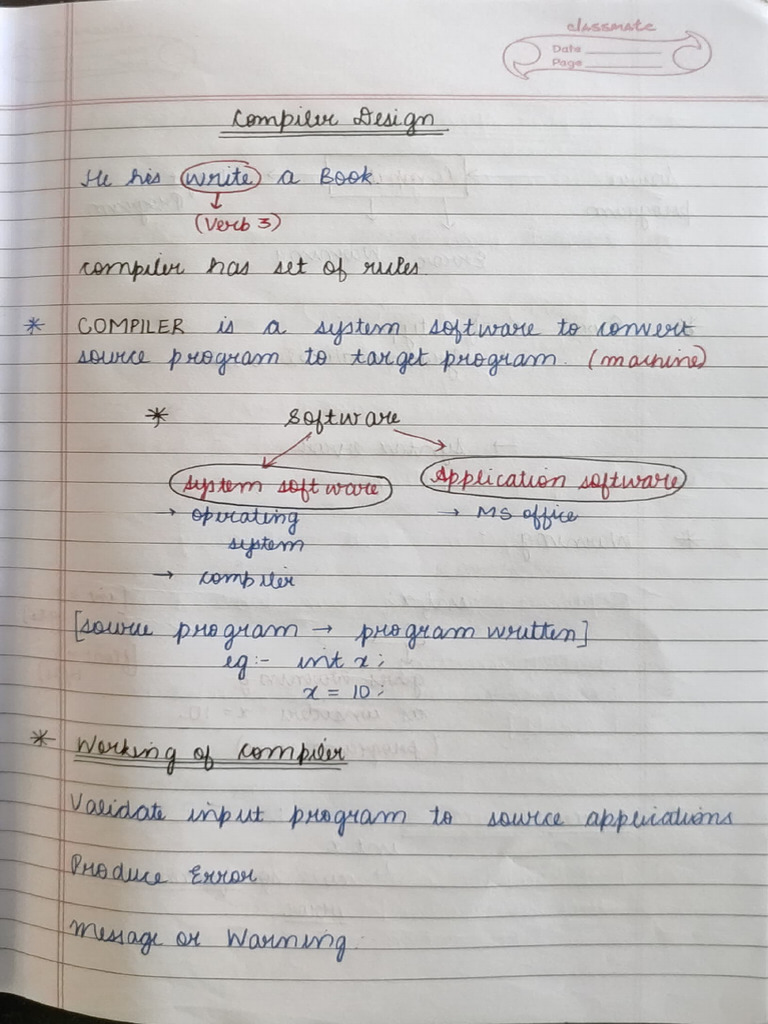 classmate
Date
Page
Compiler Design
He has write a Book
(Verb 3)
compiler has set of rules.
* COMPILER is a system software to convert
source program to target program. (machine)
* Software
System software Application software
→ operating → MS office
system
→ compiler
[source program → program written]
eg:- int x;
x = 10;
* Working of compiler
Validate input program to source applications
Produce Error
Message or Warning.